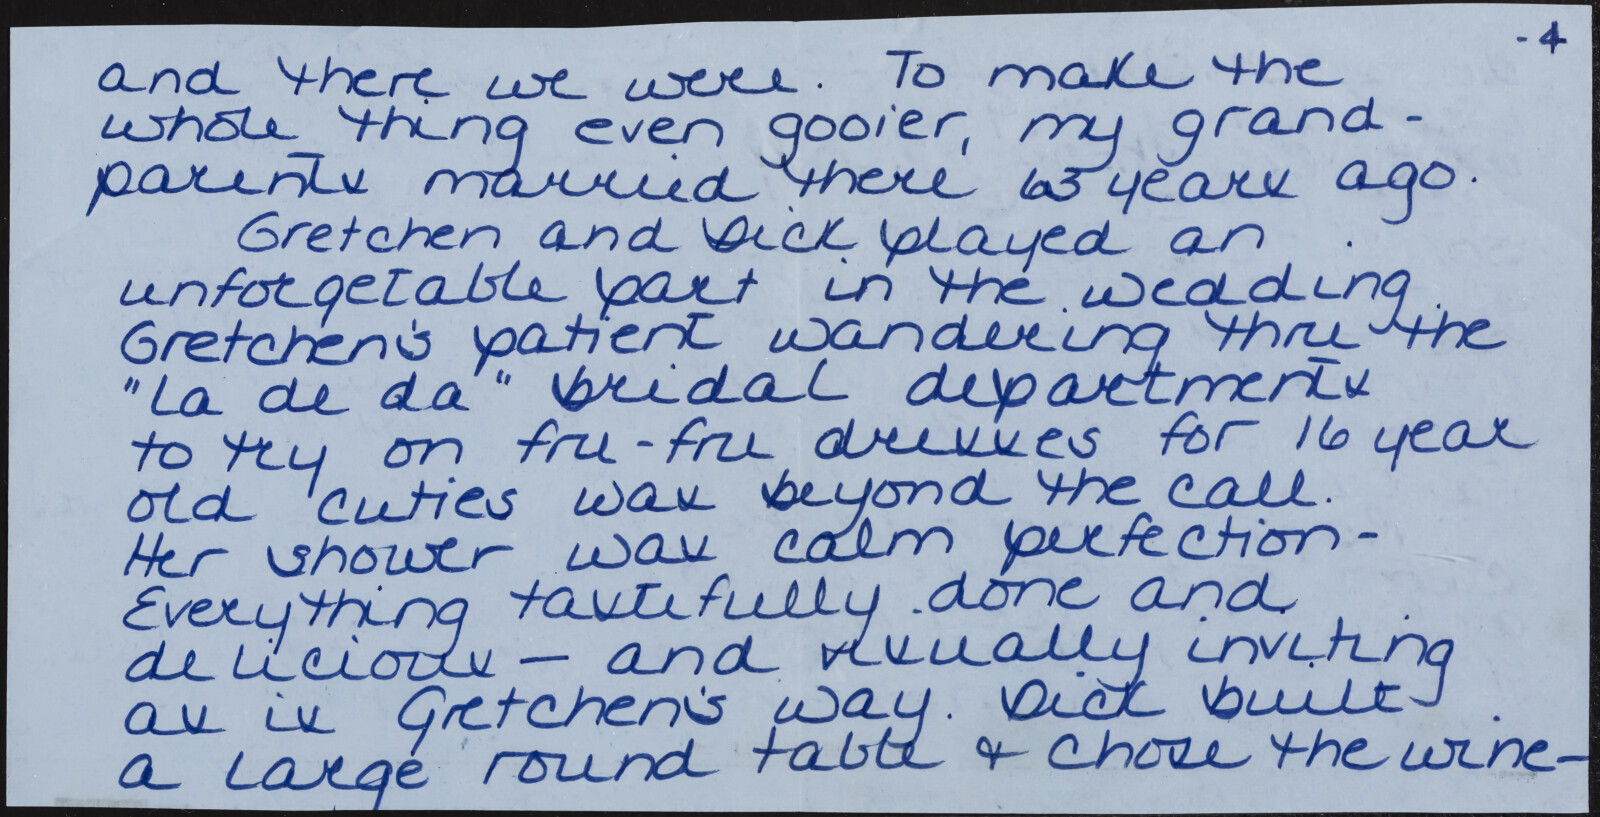 -4
and there we were. To make the
whole thing even gooier, my grand-
parents married there 63 years ago.
Gretchen and Dick played an
unforgetable part in the wedding.
Gretchen's patient wandering thru the
"la de da" bridal departments
to try on fru-fru dresses for 16 year
old cuties was beyond the call.
Her shower was calm perfection-
Everything tastefully done and
delicious — and visually inviting
as is Gretchen's way. Dick built
a large round table & chose the wine—